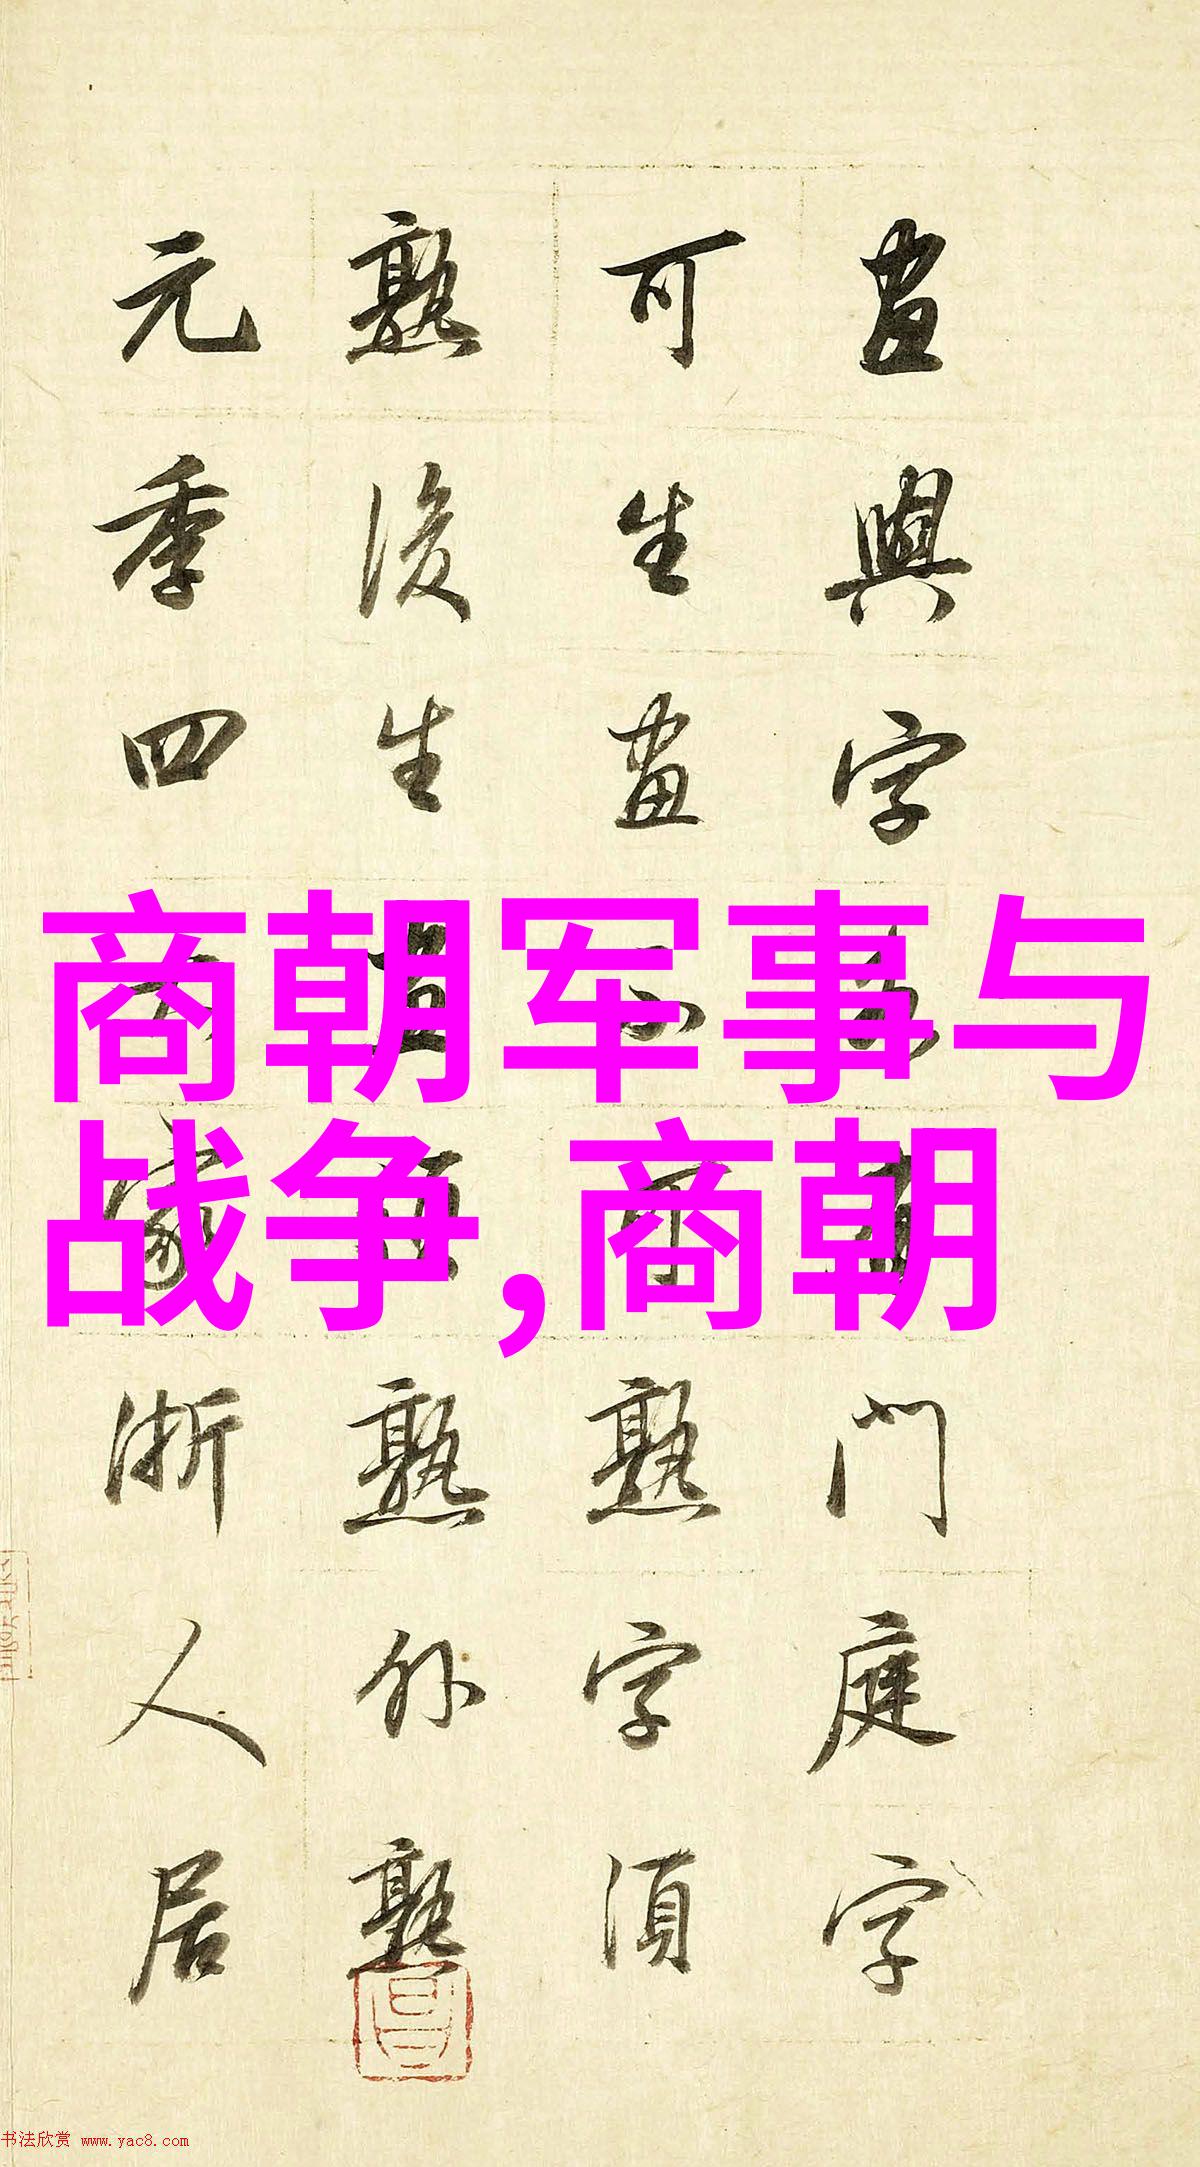 畫與字門庭字
可生畫不可熟字須
熟後生畫熟外熟
元季四大家浙人居
商朝军事与
战争,商朝
书法欣赏 www.yac8.com